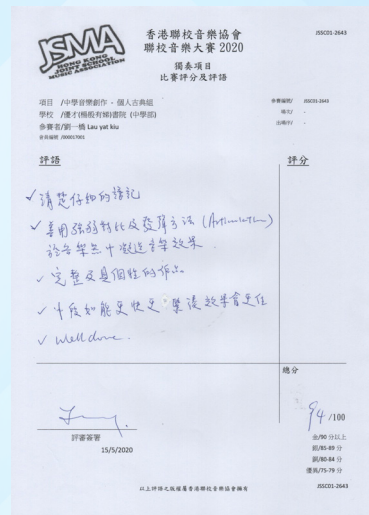 JSMA
HONG KONG
JOINT SCHOOL
MUSIC ASSOCIATION
香港聯校音樂協會
聯校音樂大賽 2020
JSSC01-2643
獨奏項目
比賽評分及評語
項目 /中學音樂創作 - 個人古典組
學校 /優才(楊殷有娣)書院 (中學部)
參賽者/劉一橋 Lau yat kiu
會員編號 /000017001
參賽編號/ JSSC01-2643
場次/ -
出場序/ -
評語
評分
✓ 清楚仔細的譜記
✓ 善用強弱對比及發揮方法 (Articulation)
於音樂中製造音樂效果
✓ 完整及具個性的作品
✓ 中段如能更快更緊湊效果會更佳
✓ Well done.
總分
94 /100
評審簽署
15/5/2020
金/90 分以上
銀/85-89 分
銅/80-84 分
優異/75-79 分
以上評語之版權屬香港聯校音樂協會擁有
JSSC01-2643